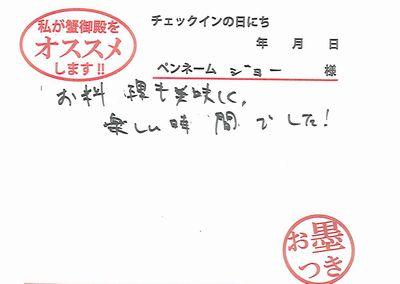 私が蟹御殿を
オススメ
します!!
チェックインの日にち
年 月 日
ペンネーム ジョー 様
お料理も美味しく、
楽しい時間でした!
お墨
つき